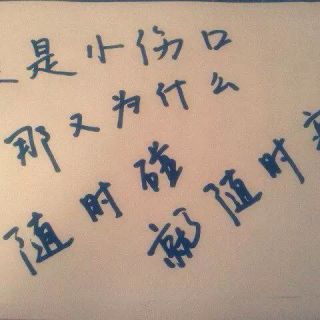 是小伤口
那又为什么
随时碰
就随时